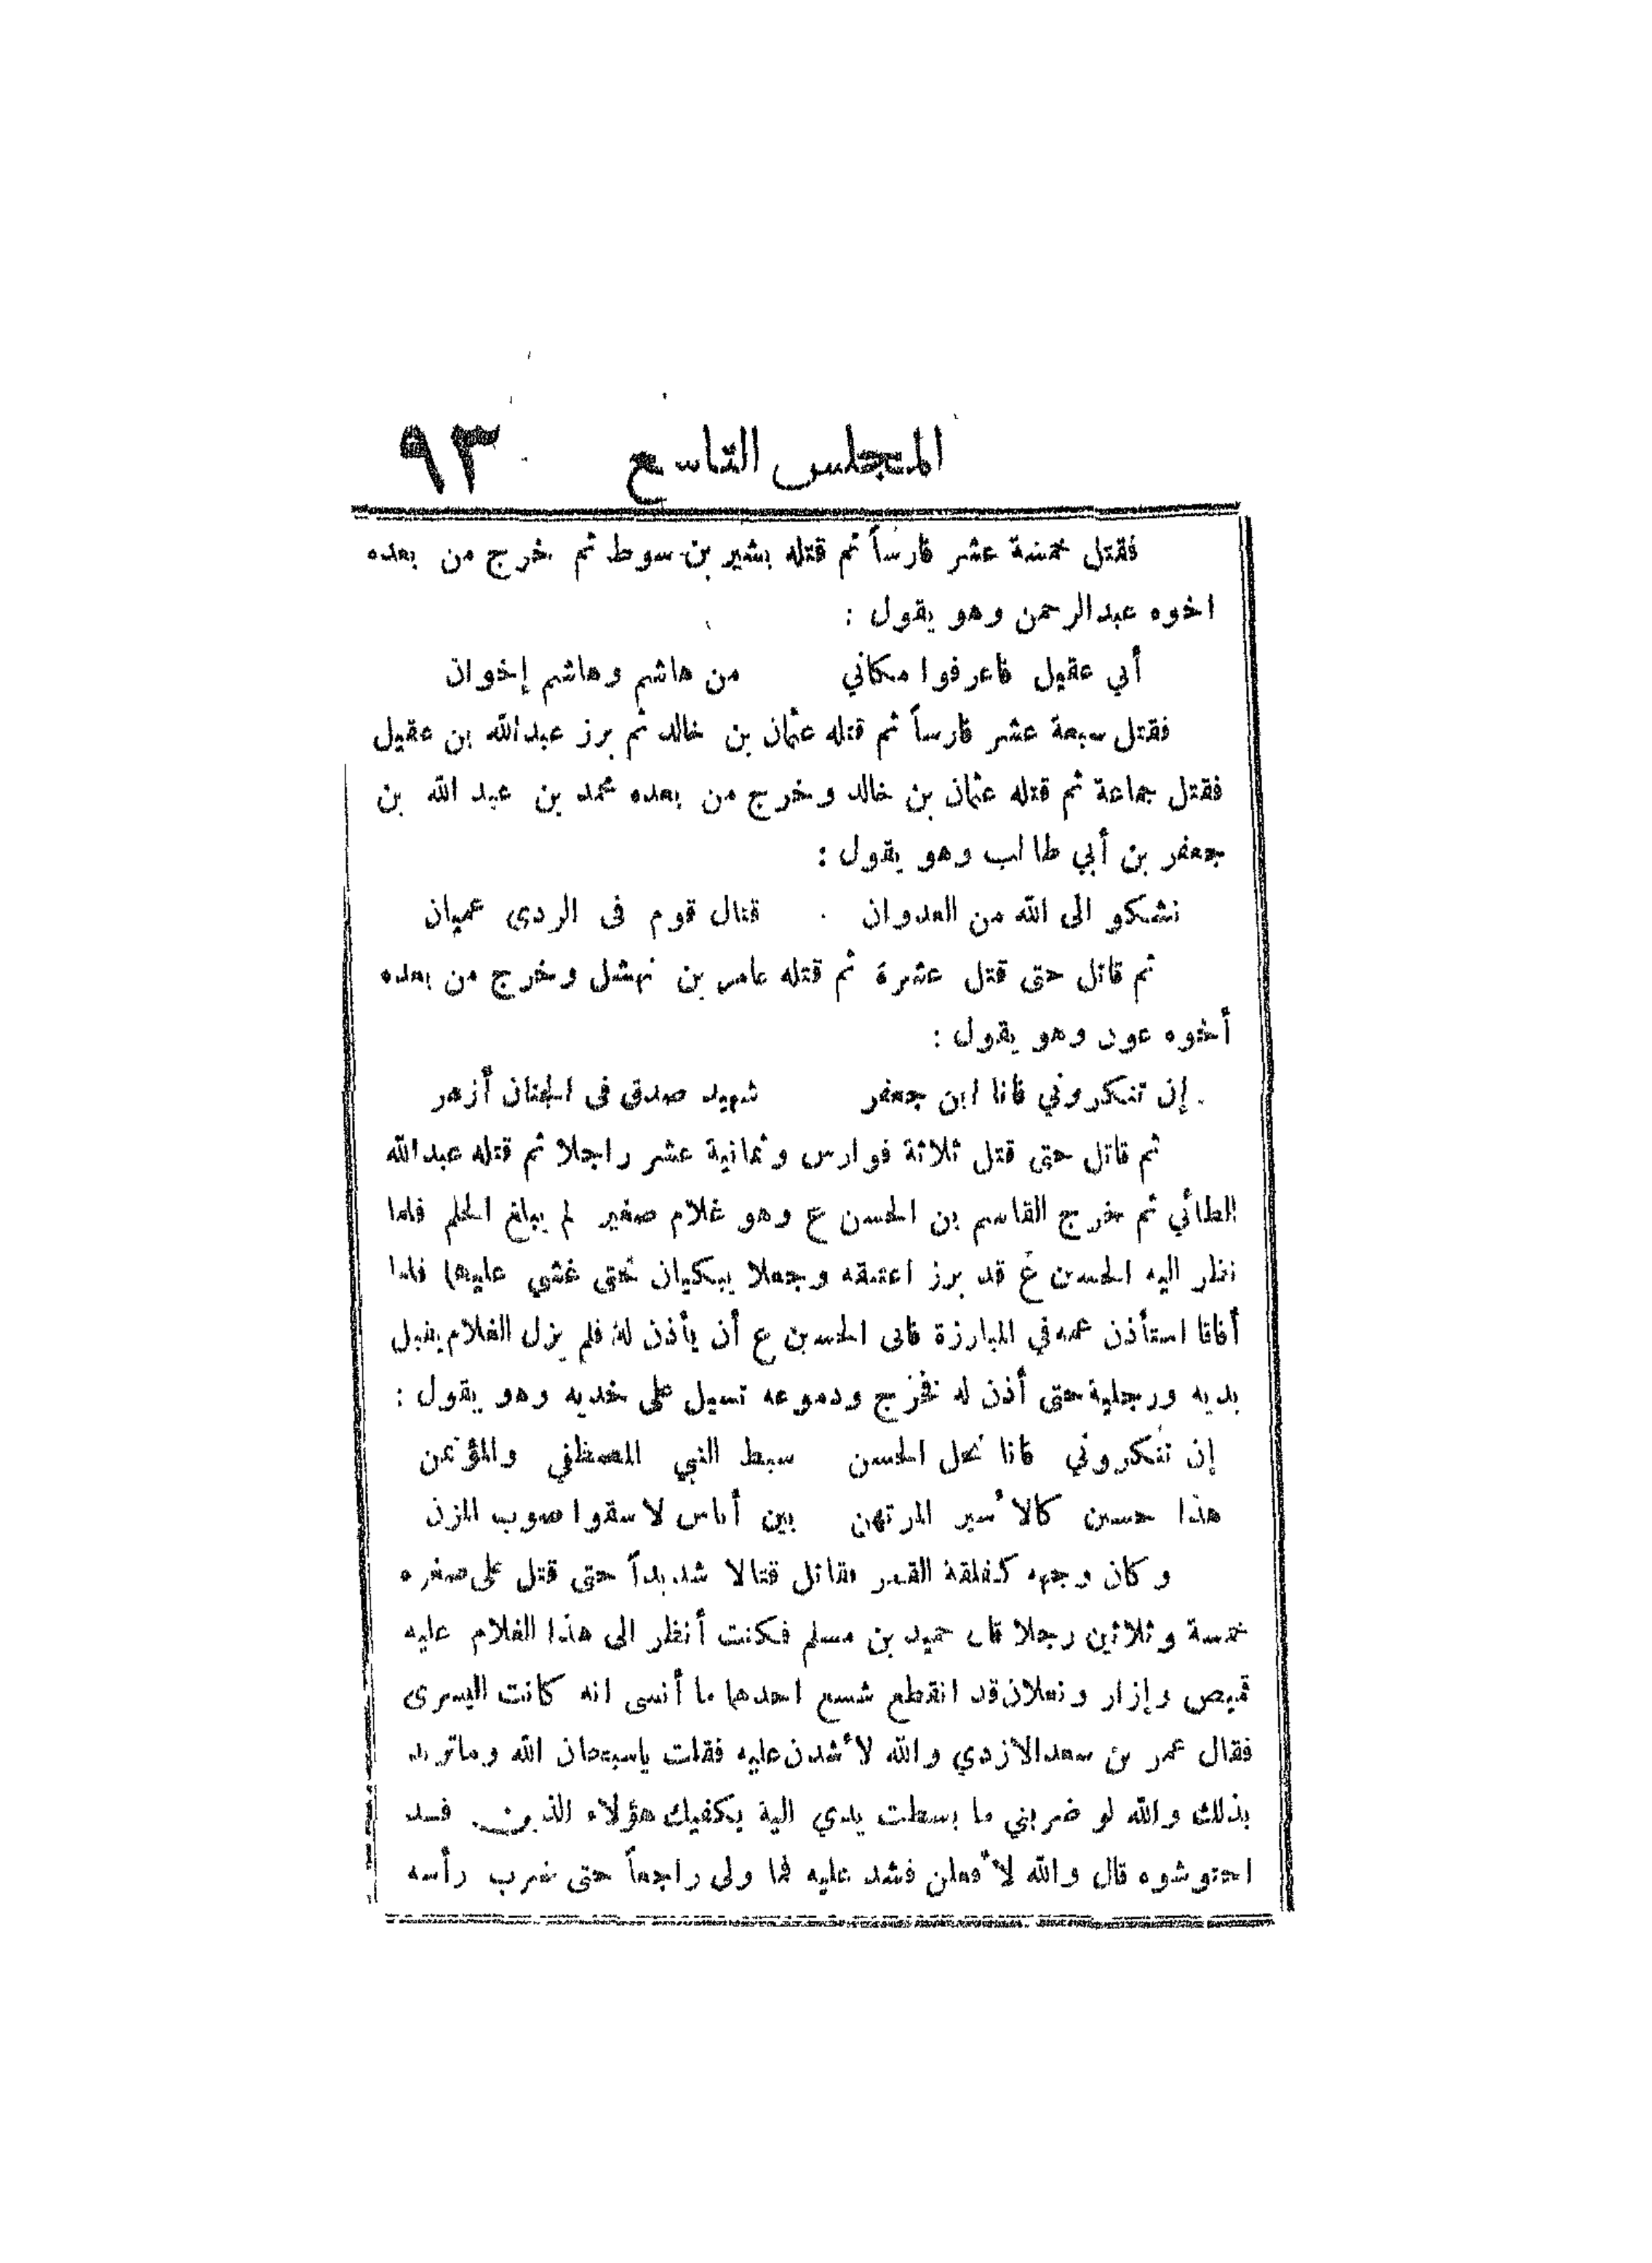 المجلس التاسع ٩٣
فقتل خمسة عشر فارساً ثم قتله بشير بن سوط ثم خرج من بعده
اخوه عبدالرحمن وهو يقول :
أبي عقيل فاعرفوا مكاني من هاشم وهاشم إخوان
فقتل سبعة عشر فارساً ثم قتله عثمان بن خالد ثم برز عبدالله بن عقيل
فقتل جماعة ثم قتله عثمان بن خالد وخرج من بعده محمد بن عبد الله بن
جعفر بن أبي طالب وهو يقول :
نشكو الى الله من العدوان قتال قوم فى الردى عميان
ثم قاتل حتى قتل عشرة ثم قتله عامر بن نهشل وخرج من بعده
أخوه عون وهو يقول :
إن تنكروني فانا ابن جعفر شهيد صدق فى الجنان أزهر
ثم قاتل حتى قتل ثلاثة فوارس وثمانية عشر راجلا ثم قتله عبدالله
الطائي ثم خرج القاسم بن الحسن ع وهو غلام صغير لم يبلغ الحلم فلما
نظر اليه الحسين ع قد برز اعتنقه وجعلا يبكيان حتى غشي عليهما فلما
أفاقا استأذن عمه في المبارزة فابى الحسين ع أن يأذن له فلم يزل الغلام يقبل
يديه ورجلية حتى أذن له فخرج ودموعه تسيل على خديه وهو يقول :
إن تنكروني فانا نجل الحسن سبط النبي المصطفي والمؤتمن
هذا حسين كالأسير المرتهن بين أناس لا سقوا صوب المزن
وكان وجهه كفلقة القمر فقاتل قتالا شديداً حتى قتل على صغره
خمسة وثلاثين رجلا قال حميد بن مسلم فكنت أنظر الى هذا الغلام عليه
قميص وإزار ونعلان قد انقطع شسع احدهما ما أنسى انه كانت اليسرى
فقال عمر بن سعد الازدي والله لأشدن عليه فقلت ياسبحان الله وماتريد
بذلك والله لو ضربني ما بسطت يدي الية يكفيك هؤلاء الذين قد
احتوشوه قال والله لأفعلن فشد عليه فما ولى راجعاً حتى ضرب رأسه